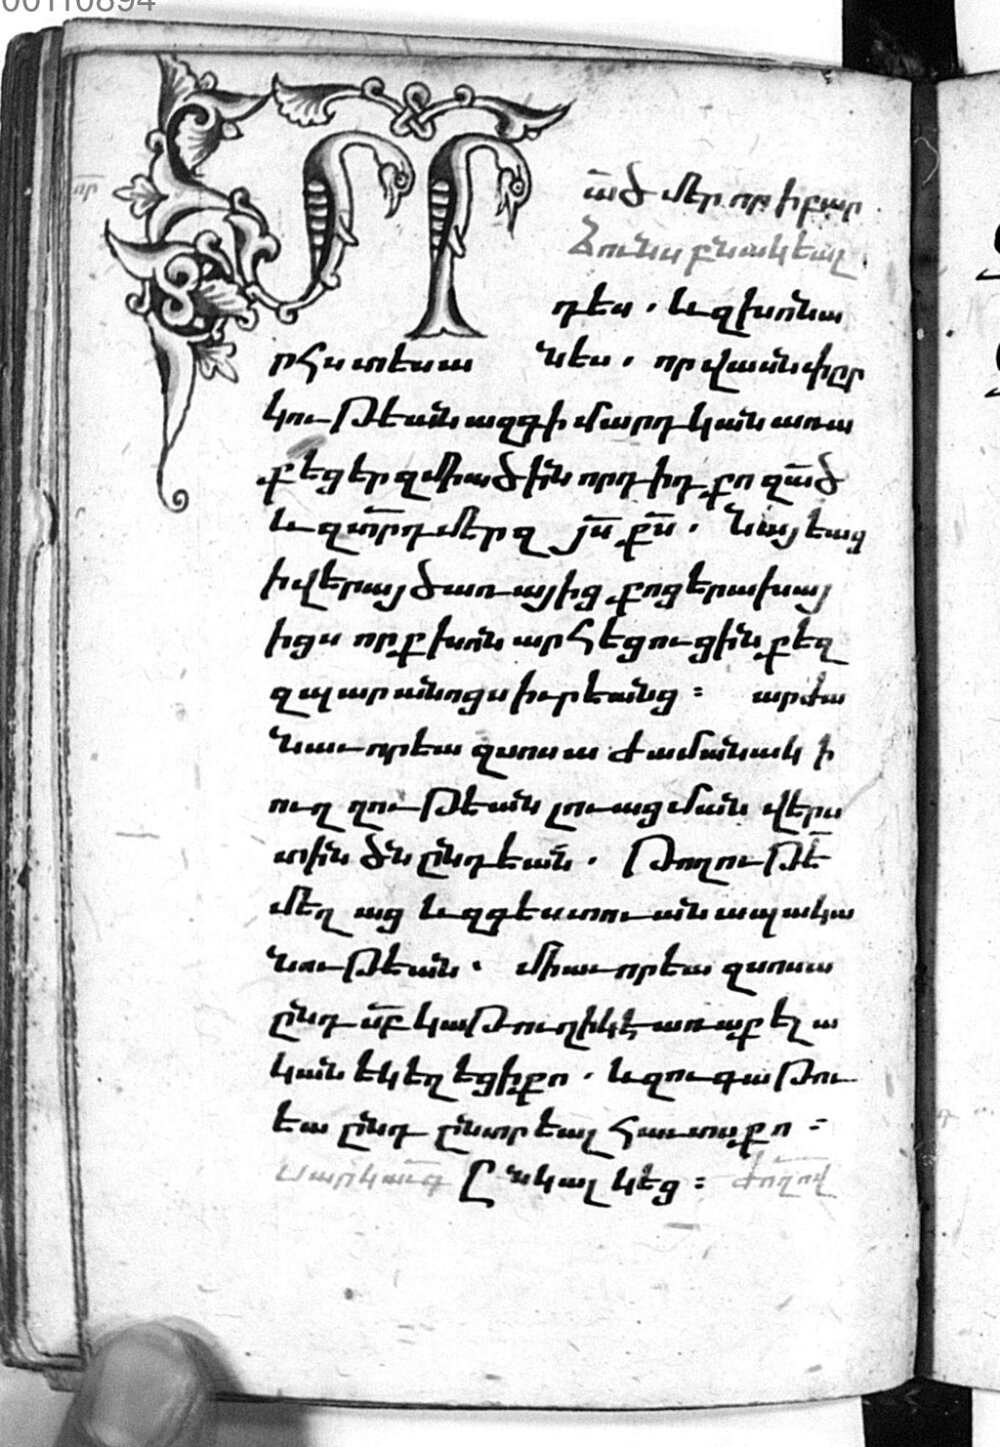 00110894
որ
Տր ած մեր որ ի բար
ձունս բնակեալ
դես. և զխոնա
րհս տեսա նես. որ վասն փըր
կութեան ազգի մարդկան առա
քեցեր զմիածին որդիդ քո զած
և զտրդ մեր զյս քս. նայեաց
ի վերայ ծառայից քոց երախայ
իցս որք խոնարհեցուցին քեզ
զպարանոցս իւրեանց։ արժա
նաւորեա զսոսա ժամանակի
ուղղութեան լուացման վերս
տին ծննդեան. թողութէ
մեղաց և զգեստու անապակա
նութեան. միաւորեա զսոսա
ընդ սբ կաթուղիկէ առաքելա
կան եկեղեցիքո. և զուգաթու
եա ընդ ընտրեալ հաւտս քո։
Սարկաւգ Ընկալ կեց։ Ժողով